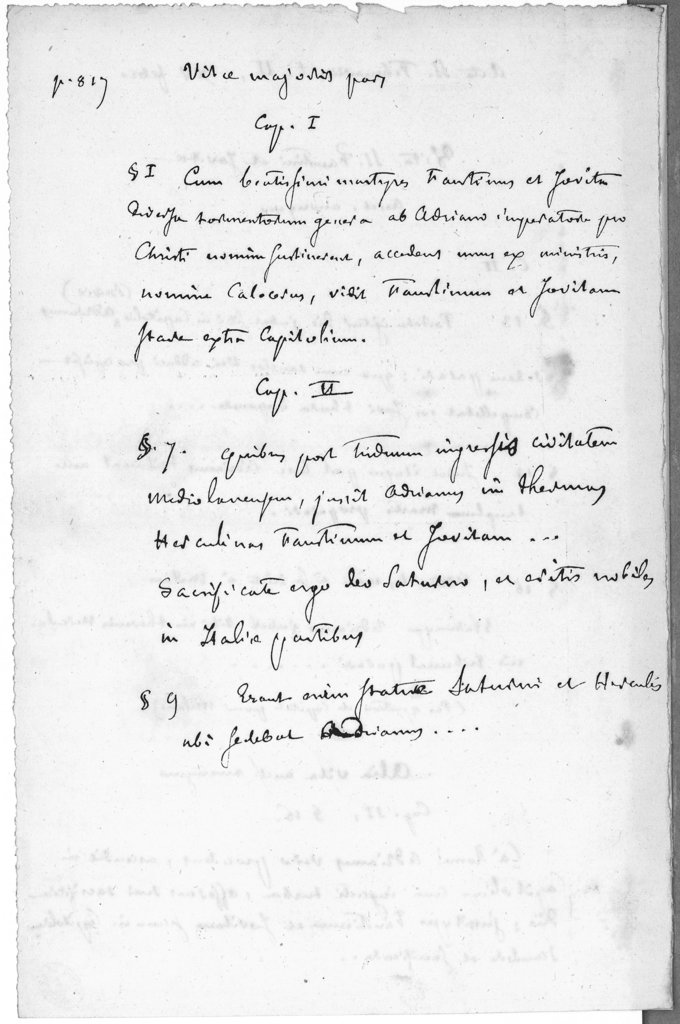 p. 817 Vitæ majoris pars
Cap. I
§ I Cum beatissimi martyres Faustinus et Jovita
diversa tormentorum genera ab Adriano imperatore pro
Christi nomine sustinerent, accedens unus ex ministris,
nomine Calocerus, vidit Faustinum et Jovitam
stare extra Capitolium.
Cap. II
§. 7. Quibus post triduum ingressis civitatem
Mediolanensem, jussit Adrianus in thermas
Herculinas Faustinum et Jovitam ...
Sacrificate ergo deo Saturno, et eritis nobiles
in Italiæ partibus
§ 9 Erant enim statuæ Saturni et Herculis
ubi sedebat Adrianus ....